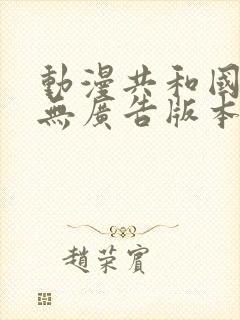 動漫共和國
無廣告版本
趙荣賓